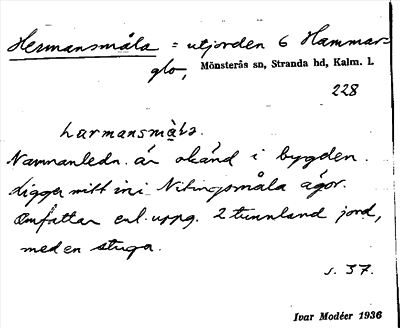 Hermansmåla = utjorden 6 Hammar-
glo, Mönsterås sn, Stranda hd, Kalm. l.
228
Larmansmåla.
Namnanledn. är okänd i bygden.
Ligger mitt in i Nitingsmåla ägor.
Omfattar enl. uppg. 2 tunnland jord,
med en stuga.
s. 37.
Ivar Modéer 1936